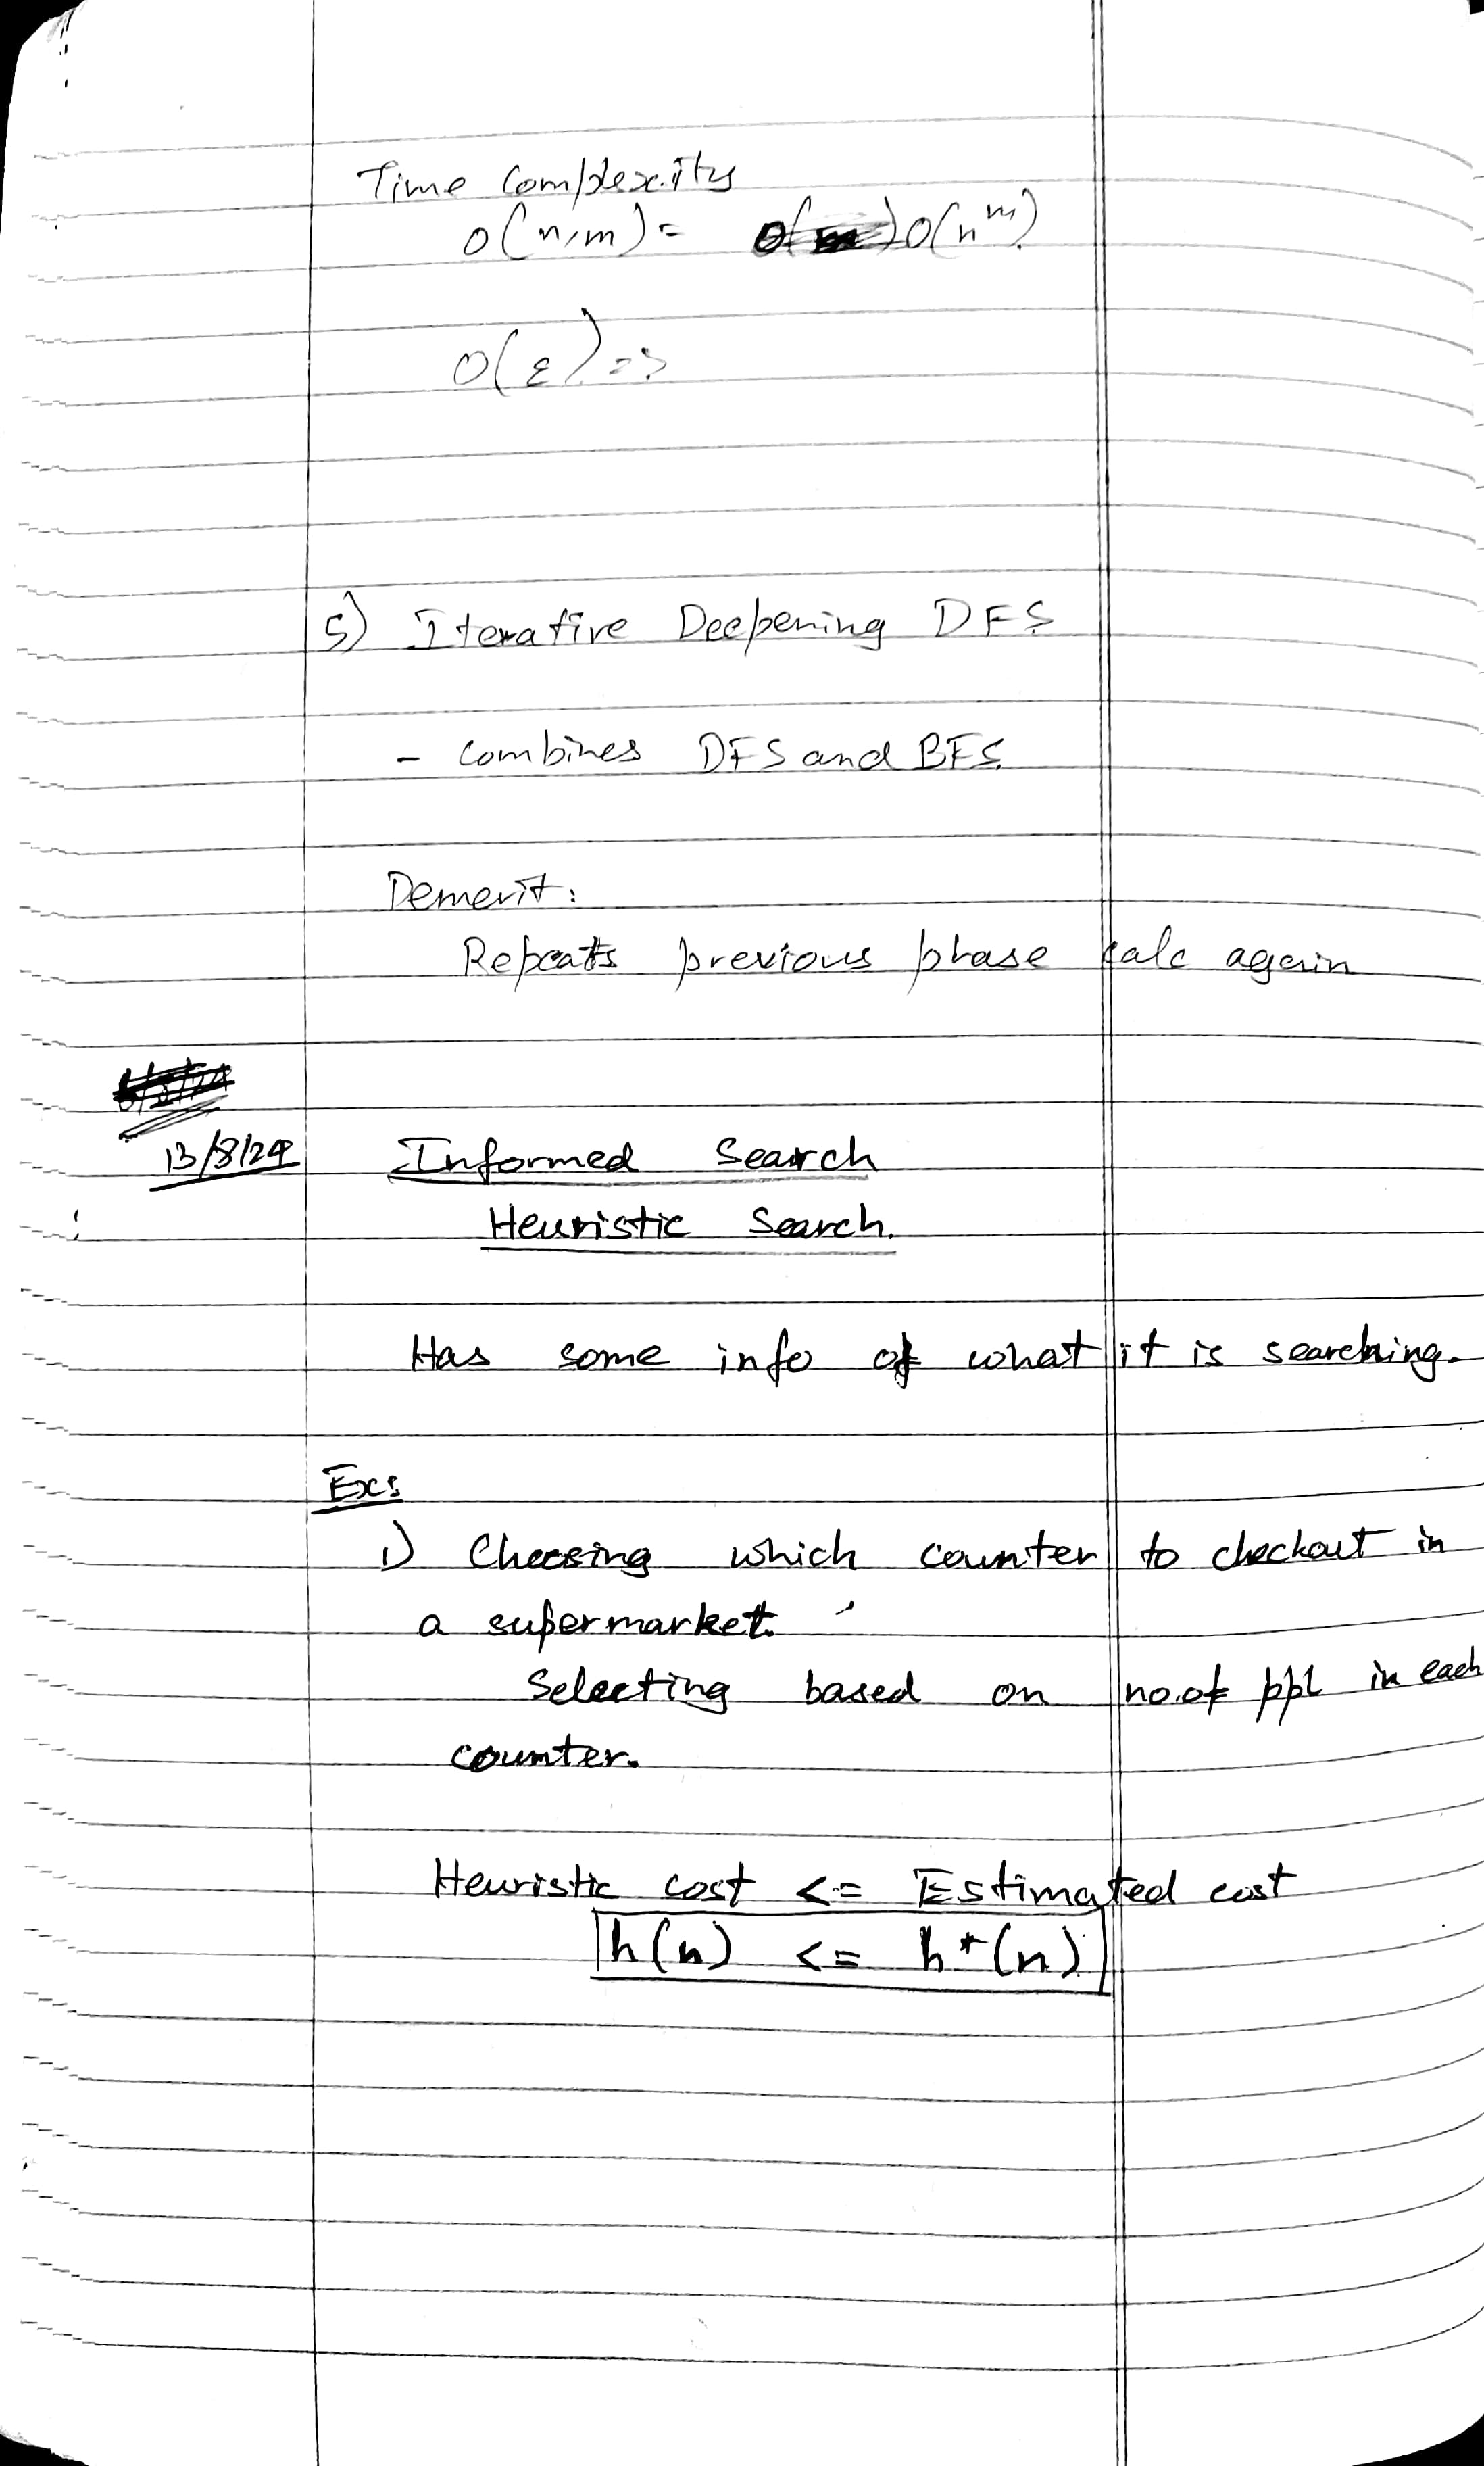 Time Complexity
O(n,m) = O(n^m)
O(ε) =>
5) Iterative Deepening DFS
- combines DFS and BFS
Demerit:
Repeats previous phase calc again
13/8/24
Informed Search
Heuristic Search.
Has some info of what it is searching.
Exs
1) Choosing which counter to checkout in
a supermarket.
Selecting based on no. of ppl in each
counter.
Heuristic cost <= Estimated cost
h(n) <= h*(n)